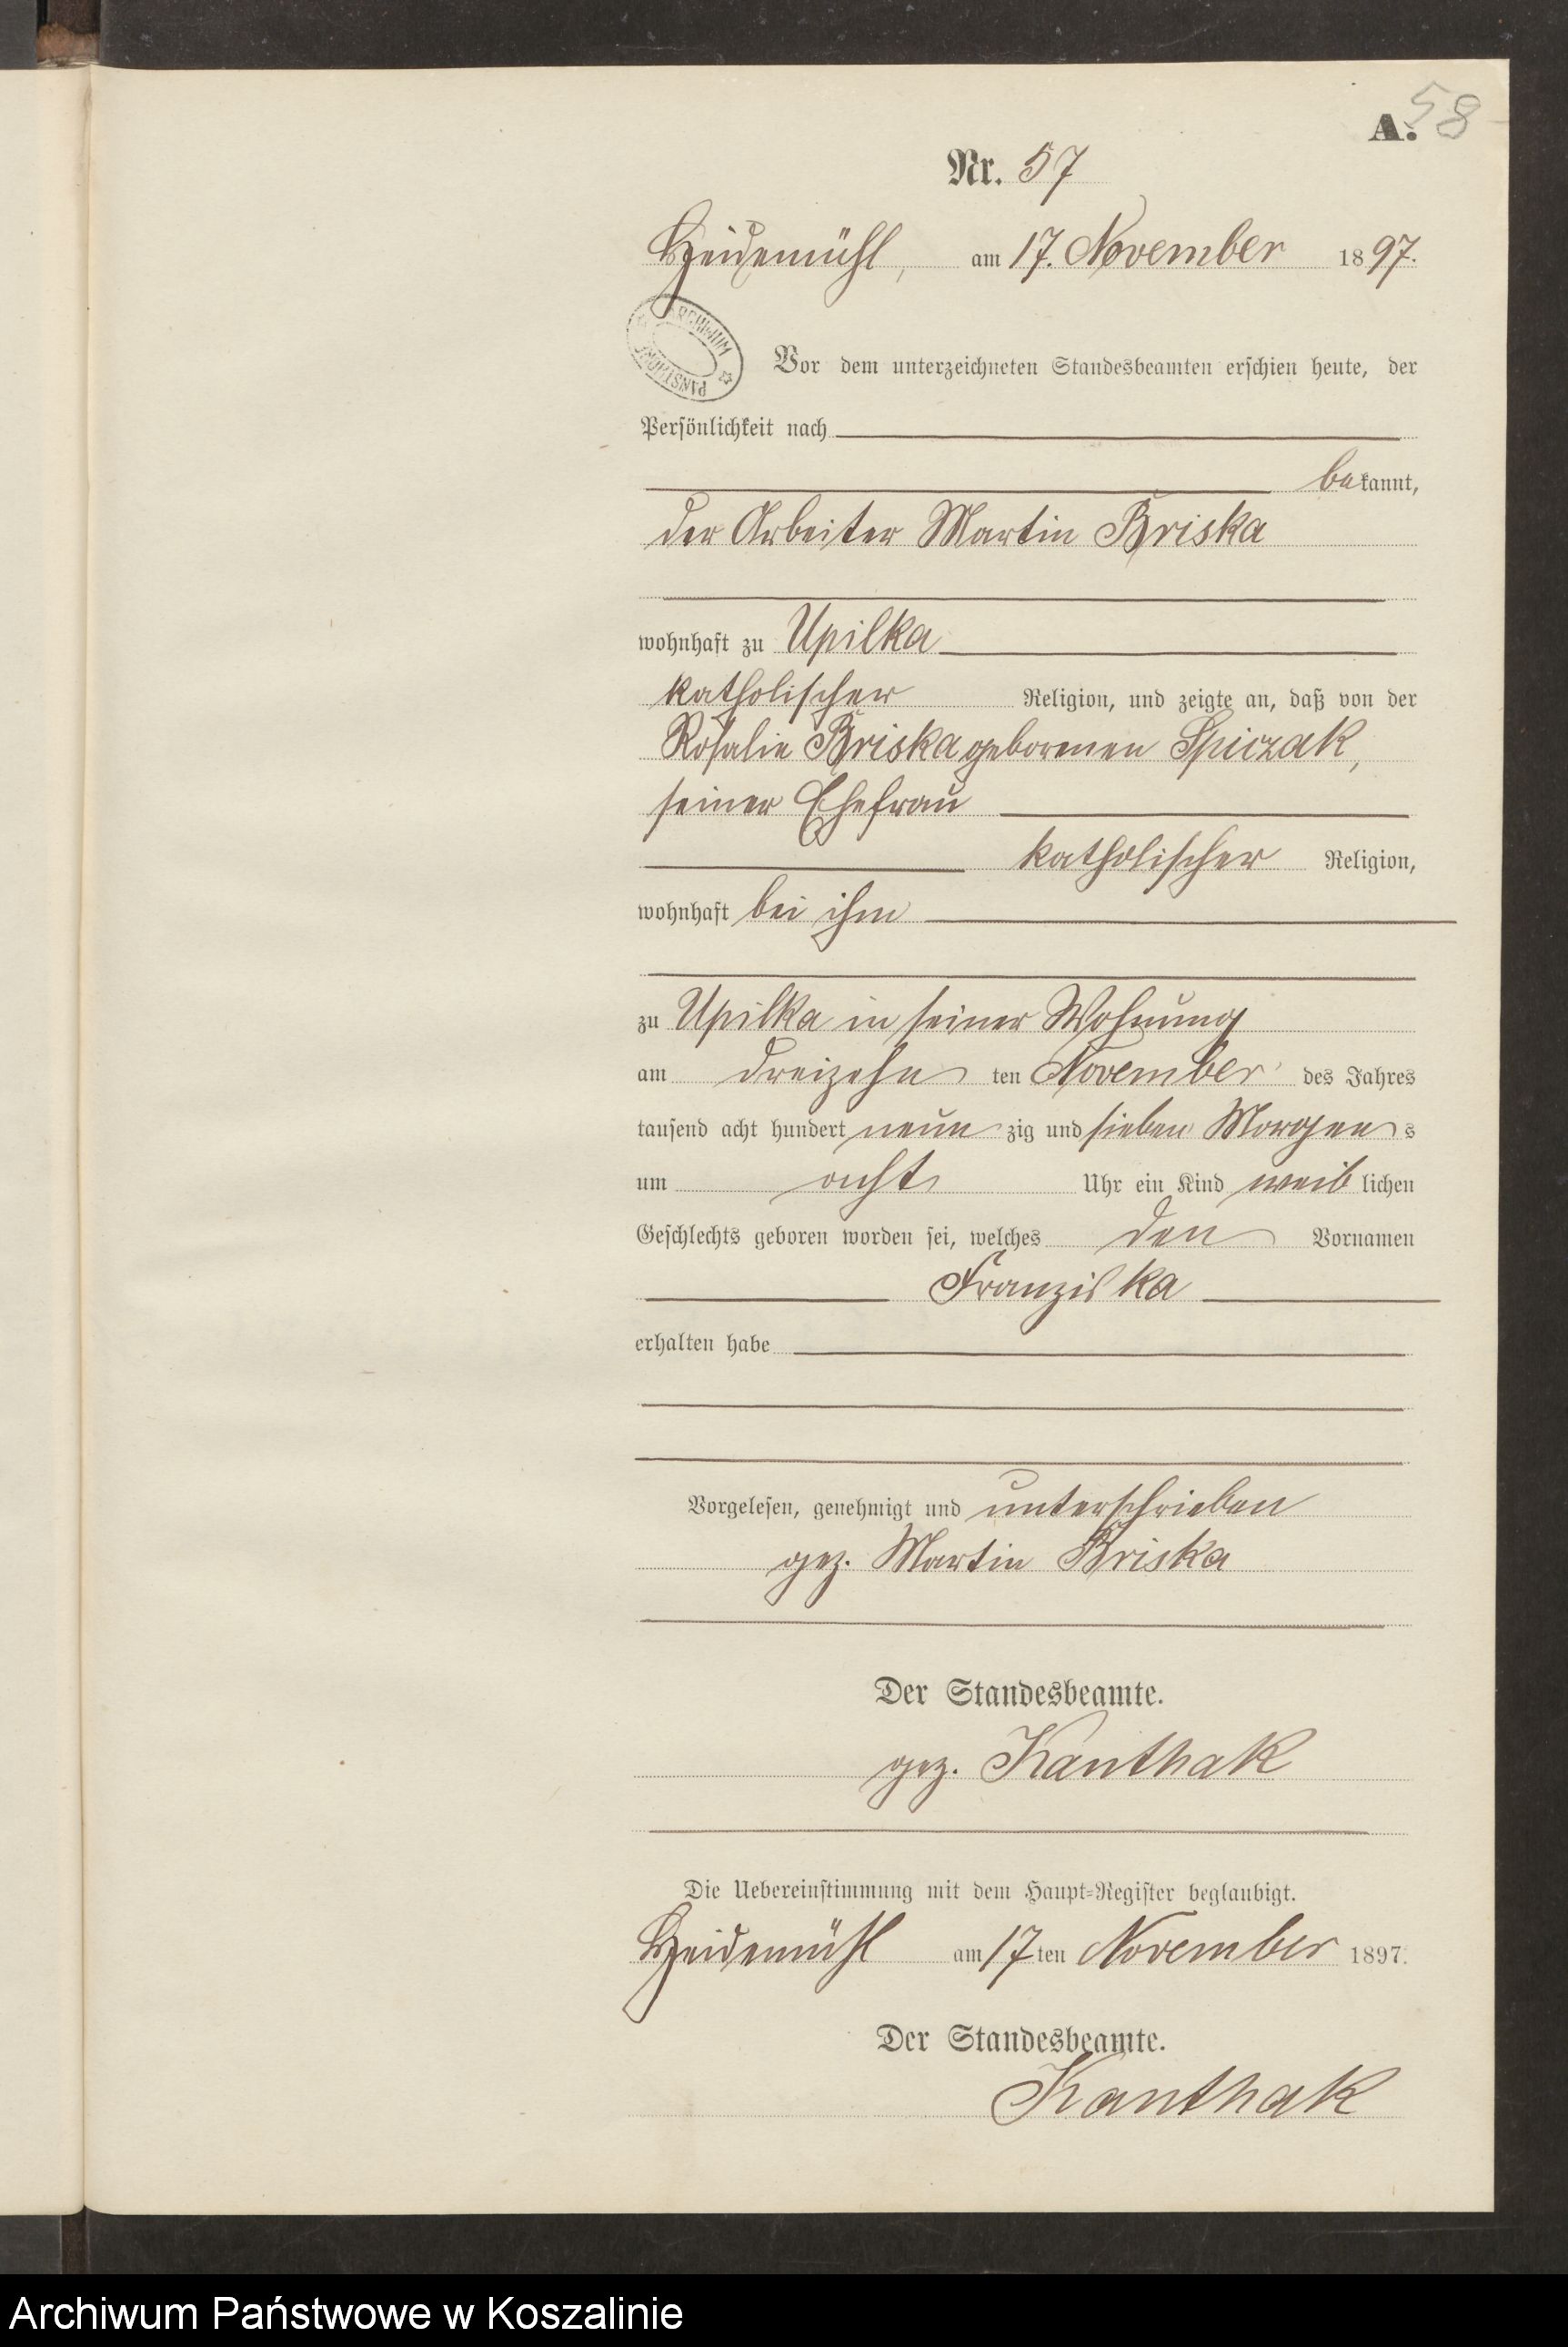 58
A.
Nr. 57
Heidemühl, am 17. November 1897.
ARCHIWUM PAŃSTWOWE
Vor dem unterzeichneten Standesbeamten erschien heute, der
Persönlichkeit nach
bekannt,
der Arbeiter Martin Briska
wohnhaft zu Upilka
katholischer Religion, und zeigte an, daß von der
Rosalie Briska geborenen Spiczak,
seiner Ehefrau
katholischer Religion,
wohnhaft bei ihm
zu Upilka in seiner Wohnung
am dreizehnten November des Jahres
tausend acht hundert neunzig und sieben Morgens
um acht Uhr ein Kind weiblichen
Geschlechts geboren worden sei, welches den Vornamen
Franziska
erhalten habe
Vorgelesen, genehmigt und unterschrieben
gez. Martin Briska
Der Standesbeamte.
gez. Kanthak
Die Uebereinstimmung mit dem Haupt-Register beglaubigt.
Heidemühl am 17ten November 1897.
Der Standesbeamte.
Kanthak
Archiwum Państwowe w Koszalinie